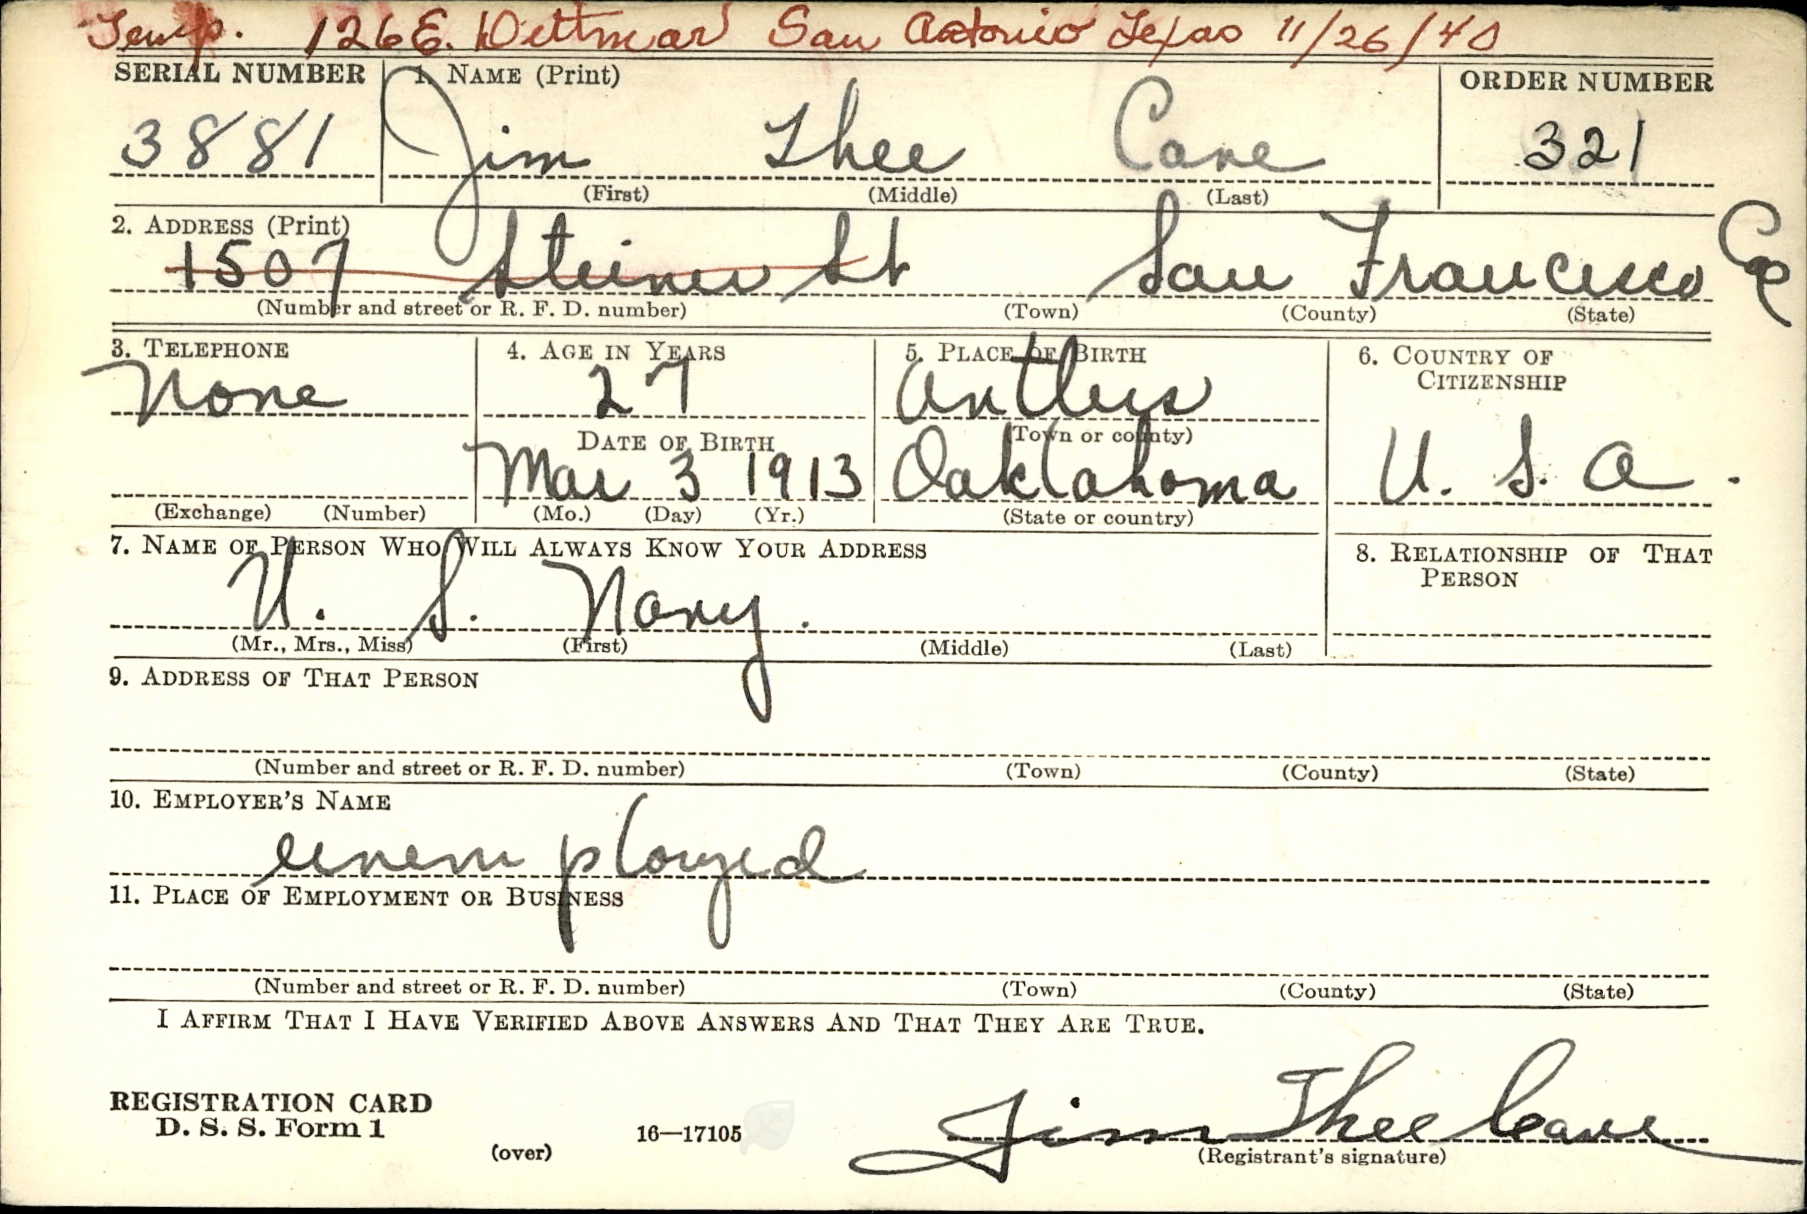 Temp. 126 E. Dittmar San Antonio Texas 11/26/40
SERIAL NUMBER 1. NAME (Print) ORDER NUMBER
3881 Jim Thee Cave 321
(First) (Middle) (Last)
2. ADDRESS (Print)
1507 Steiner St San Francisco Ca
(Number and street or R. F. D. number) (Town) (County) (State)
3. TELEPHONE 4. AGE IN YEARS 5. PLACE OF BIRTH 6. COUNTRY OF CITIZENSHIP
None 27 Antlers
DATE OF BIRTH (Town or county)
Mar 3 1913 Oaklahoma U. S. A.
(Exchange) (Number) (Mo.) (Day) (Yr.) (State or country)
7. NAME OF PERSON WHO WILL ALWAYS KNOW YOUR ADDRESS 8. RELATIONSHIP OF THAT PERSON
U. S. Navy.
(Mr., Mrs., Miss) (First) (Middle) (Last)
9. ADDRESS OF THAT PERSON
(Number and street or R. F. D. number) (Town) (County) (State)
10. EMPLOYER'S NAME
unemployed
11. PLACE OF EMPLOYMENT OR BUSINESS
(Number and street or R. F. D. number) (Town) (County) (State)
I AFFIRM THAT I HAVE VERIFIED ABOVE ANSWERS AND THAT THEY ARE TRUE.
REGISTRATION CARD
D. S. S. Form 1 16—17105 Jim Thee Cave
(over) (Registrant's signature)